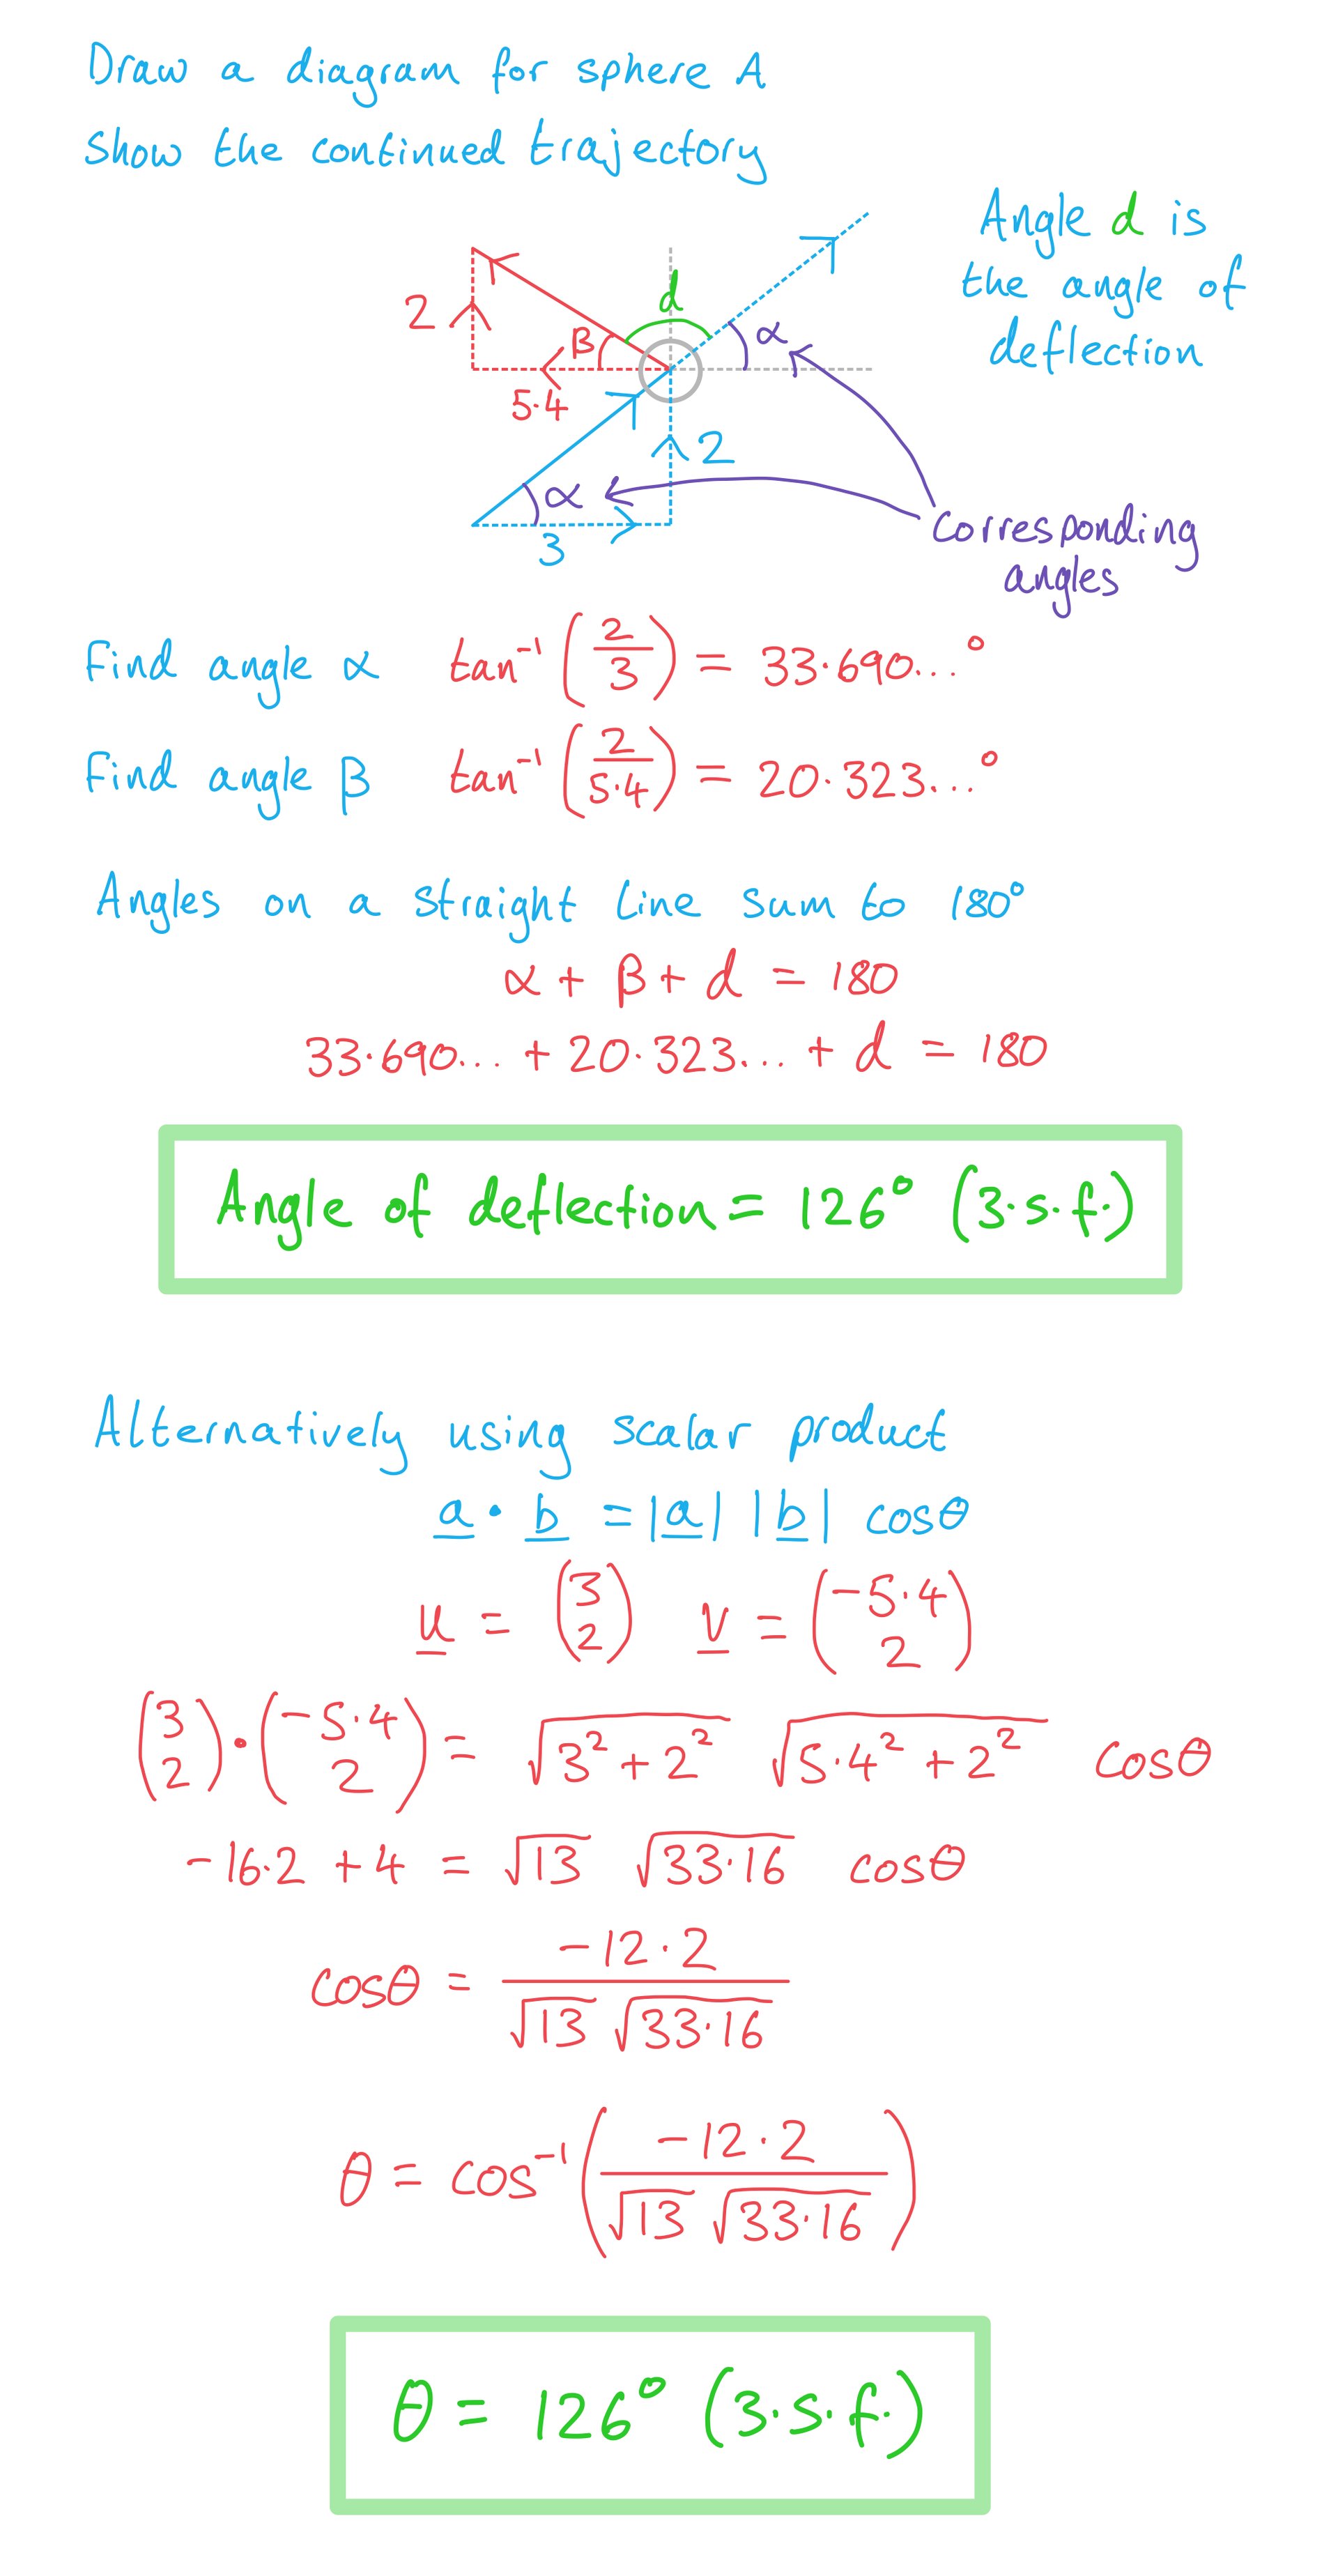 Draw a diagram for sphere A
Show the continued trajectory
Angle d is
the angle of
deflection
2
β
d
α
5.4
2
α
3
Corresponding
angles
Find angle α tan⁻¹(2/3) = 33.690...°
Find angle β tan⁻¹(2/5.4) = 20.323...°
Angles on a straight line sum to 180°
α + β + d = 180
33.690... + 20.323... + d = 180
Angle of deflection = 126° (3.s.f.)
Alternatively using scalar product
a · b = |a| |b| cosθ
u = (3 2) v = (-5.4 2)
(3 2) · (-5.4 2) = √(3² + 2²) √(5.4² + 2²) cosθ
-16.2 + 4 = √13 √33.16 cosθ
cosθ = -12.2 / (√13 √33.16)
θ = cos⁻¹(-12.2 / (√13 √33.16))
θ = 126° (3.s.f.)